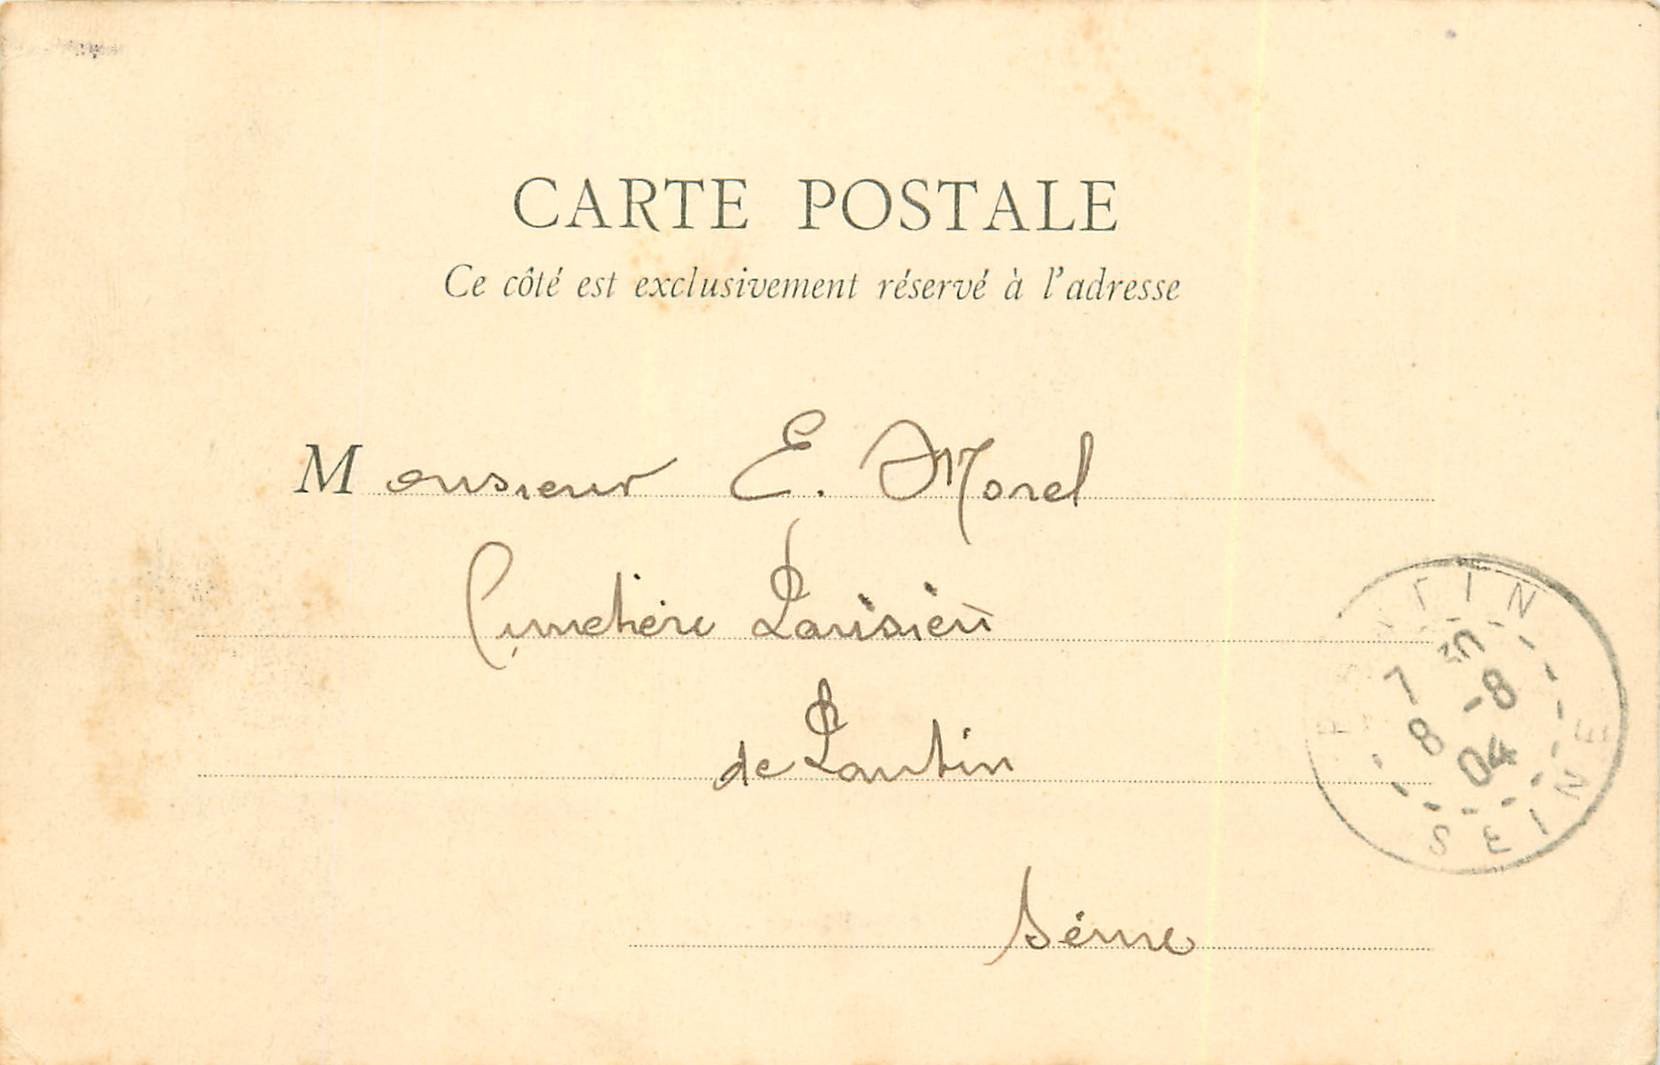 CARTE POSTALE
Ce côté est exclusivement réservé à l'adresse
Monsieur E. Morel
Cimetière Parisien
de Pantin
Seine
PANTIN
7 30
8 -8
04
SEINE